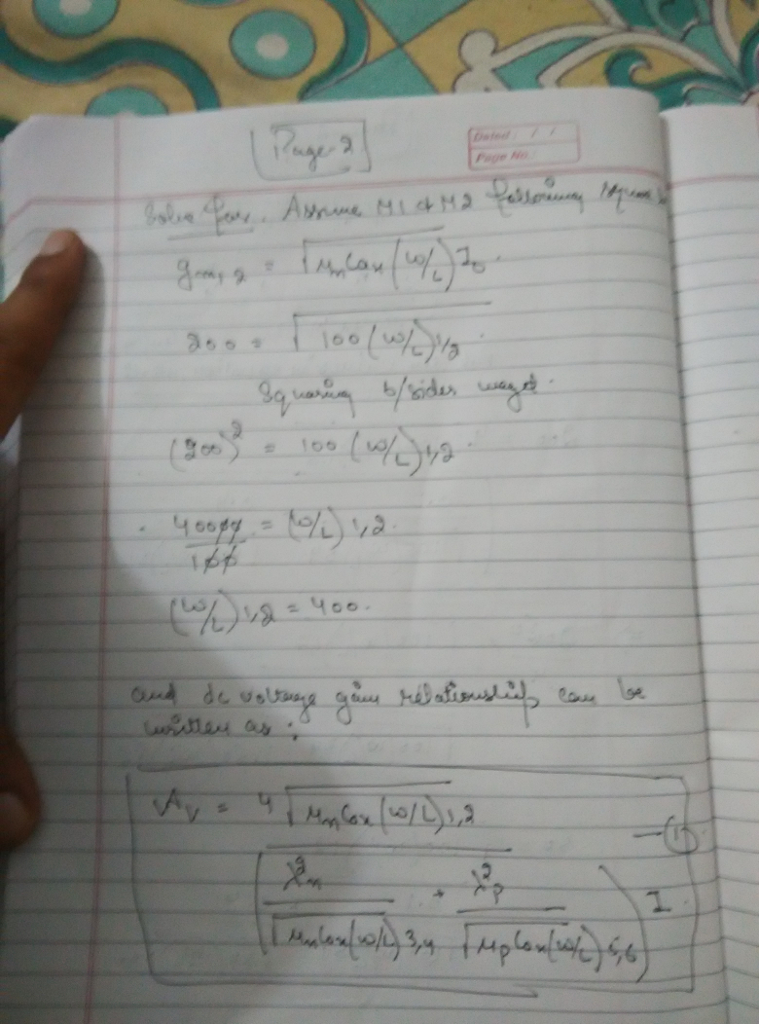 Page-2
Dated: / /
Page No:
Solve for. Assume M1 & M2 following square
gm1,2 = √μnCox(W/L) I0.
200 = √100(W/L)1/2
Squaring b/sides
(200)² = 100 (W/L)1,2.
40000/100 = (W/L)1,2.
(W/L)1,2 = 400.
and dc voltage gain relationship can be
written as:
AV = 4√μnCox(W/L)1,2 — (1)
(λ²n/√μnCox(W/L)3,4 + λ²p/√μpCox(W/L)5,6) I